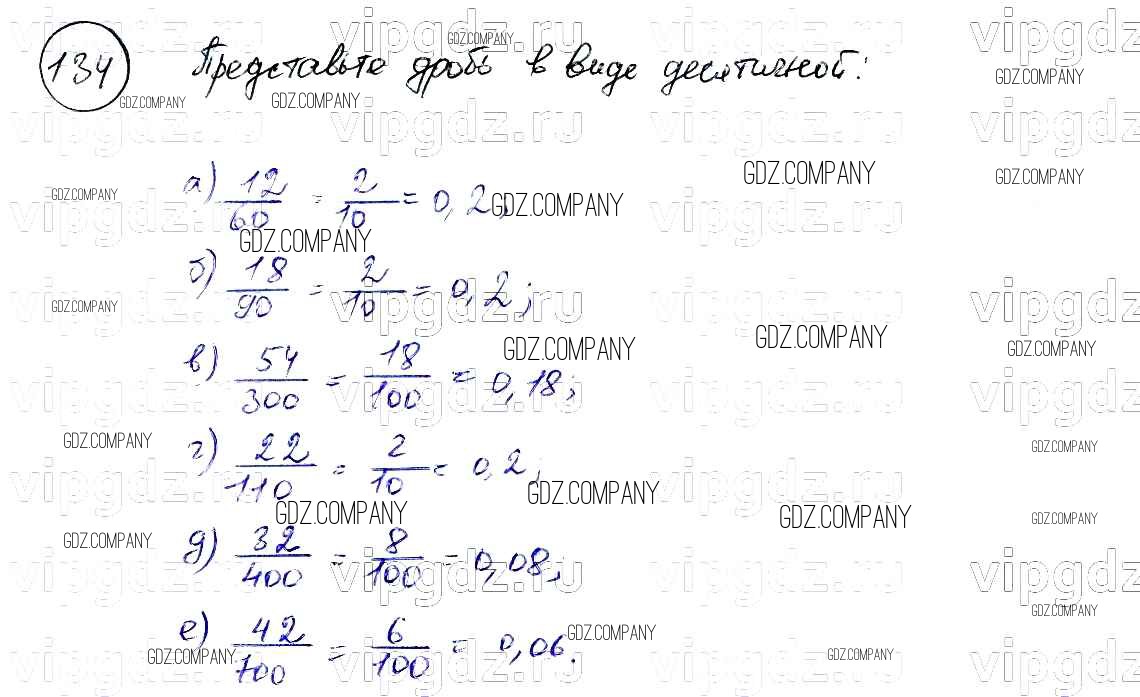 134 Представьте дробь в виде десятичной:
а) 12/60 = 2/10 = 0,2;
б) 18/90 = 2/10 = 0,2;
в) 54/300 = 18/100 = 0,18;
г) 22/110 = 2/10 = 0,2;
д) 32/400 = 8/100 = 0,08;
е) 42/700 = 6/100 = 0,06.
vipgdz.ru
GDZ.COMPANY